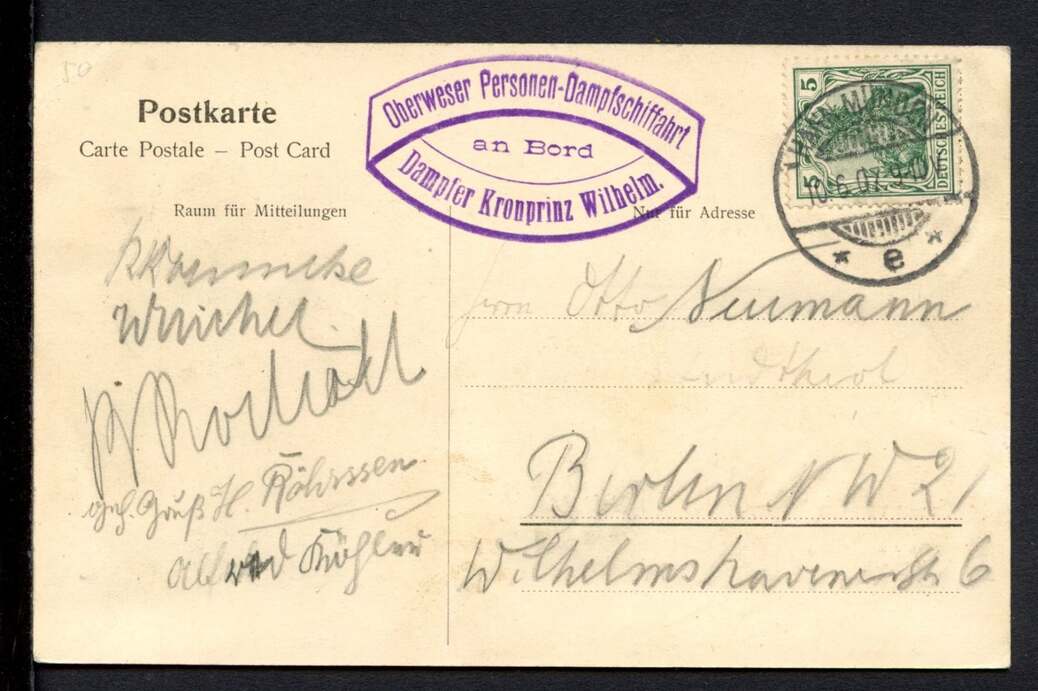 50
Postkarte
Carte Postale – Post Card
Raum für Mitteilungen
Oberweser Personen-Dampfschiffahrt
an Bord
Dampfer Kronprinz Wilhelm.
Nur für Adresse
5
5
DEUTSCHES REICH
10.6.07.9-10
* e *
Herrn Otto Neumann
Berlin NW 21
Wilhelmshavenerstr 6
Gruß H. Röhrssen
Alfred Köhler